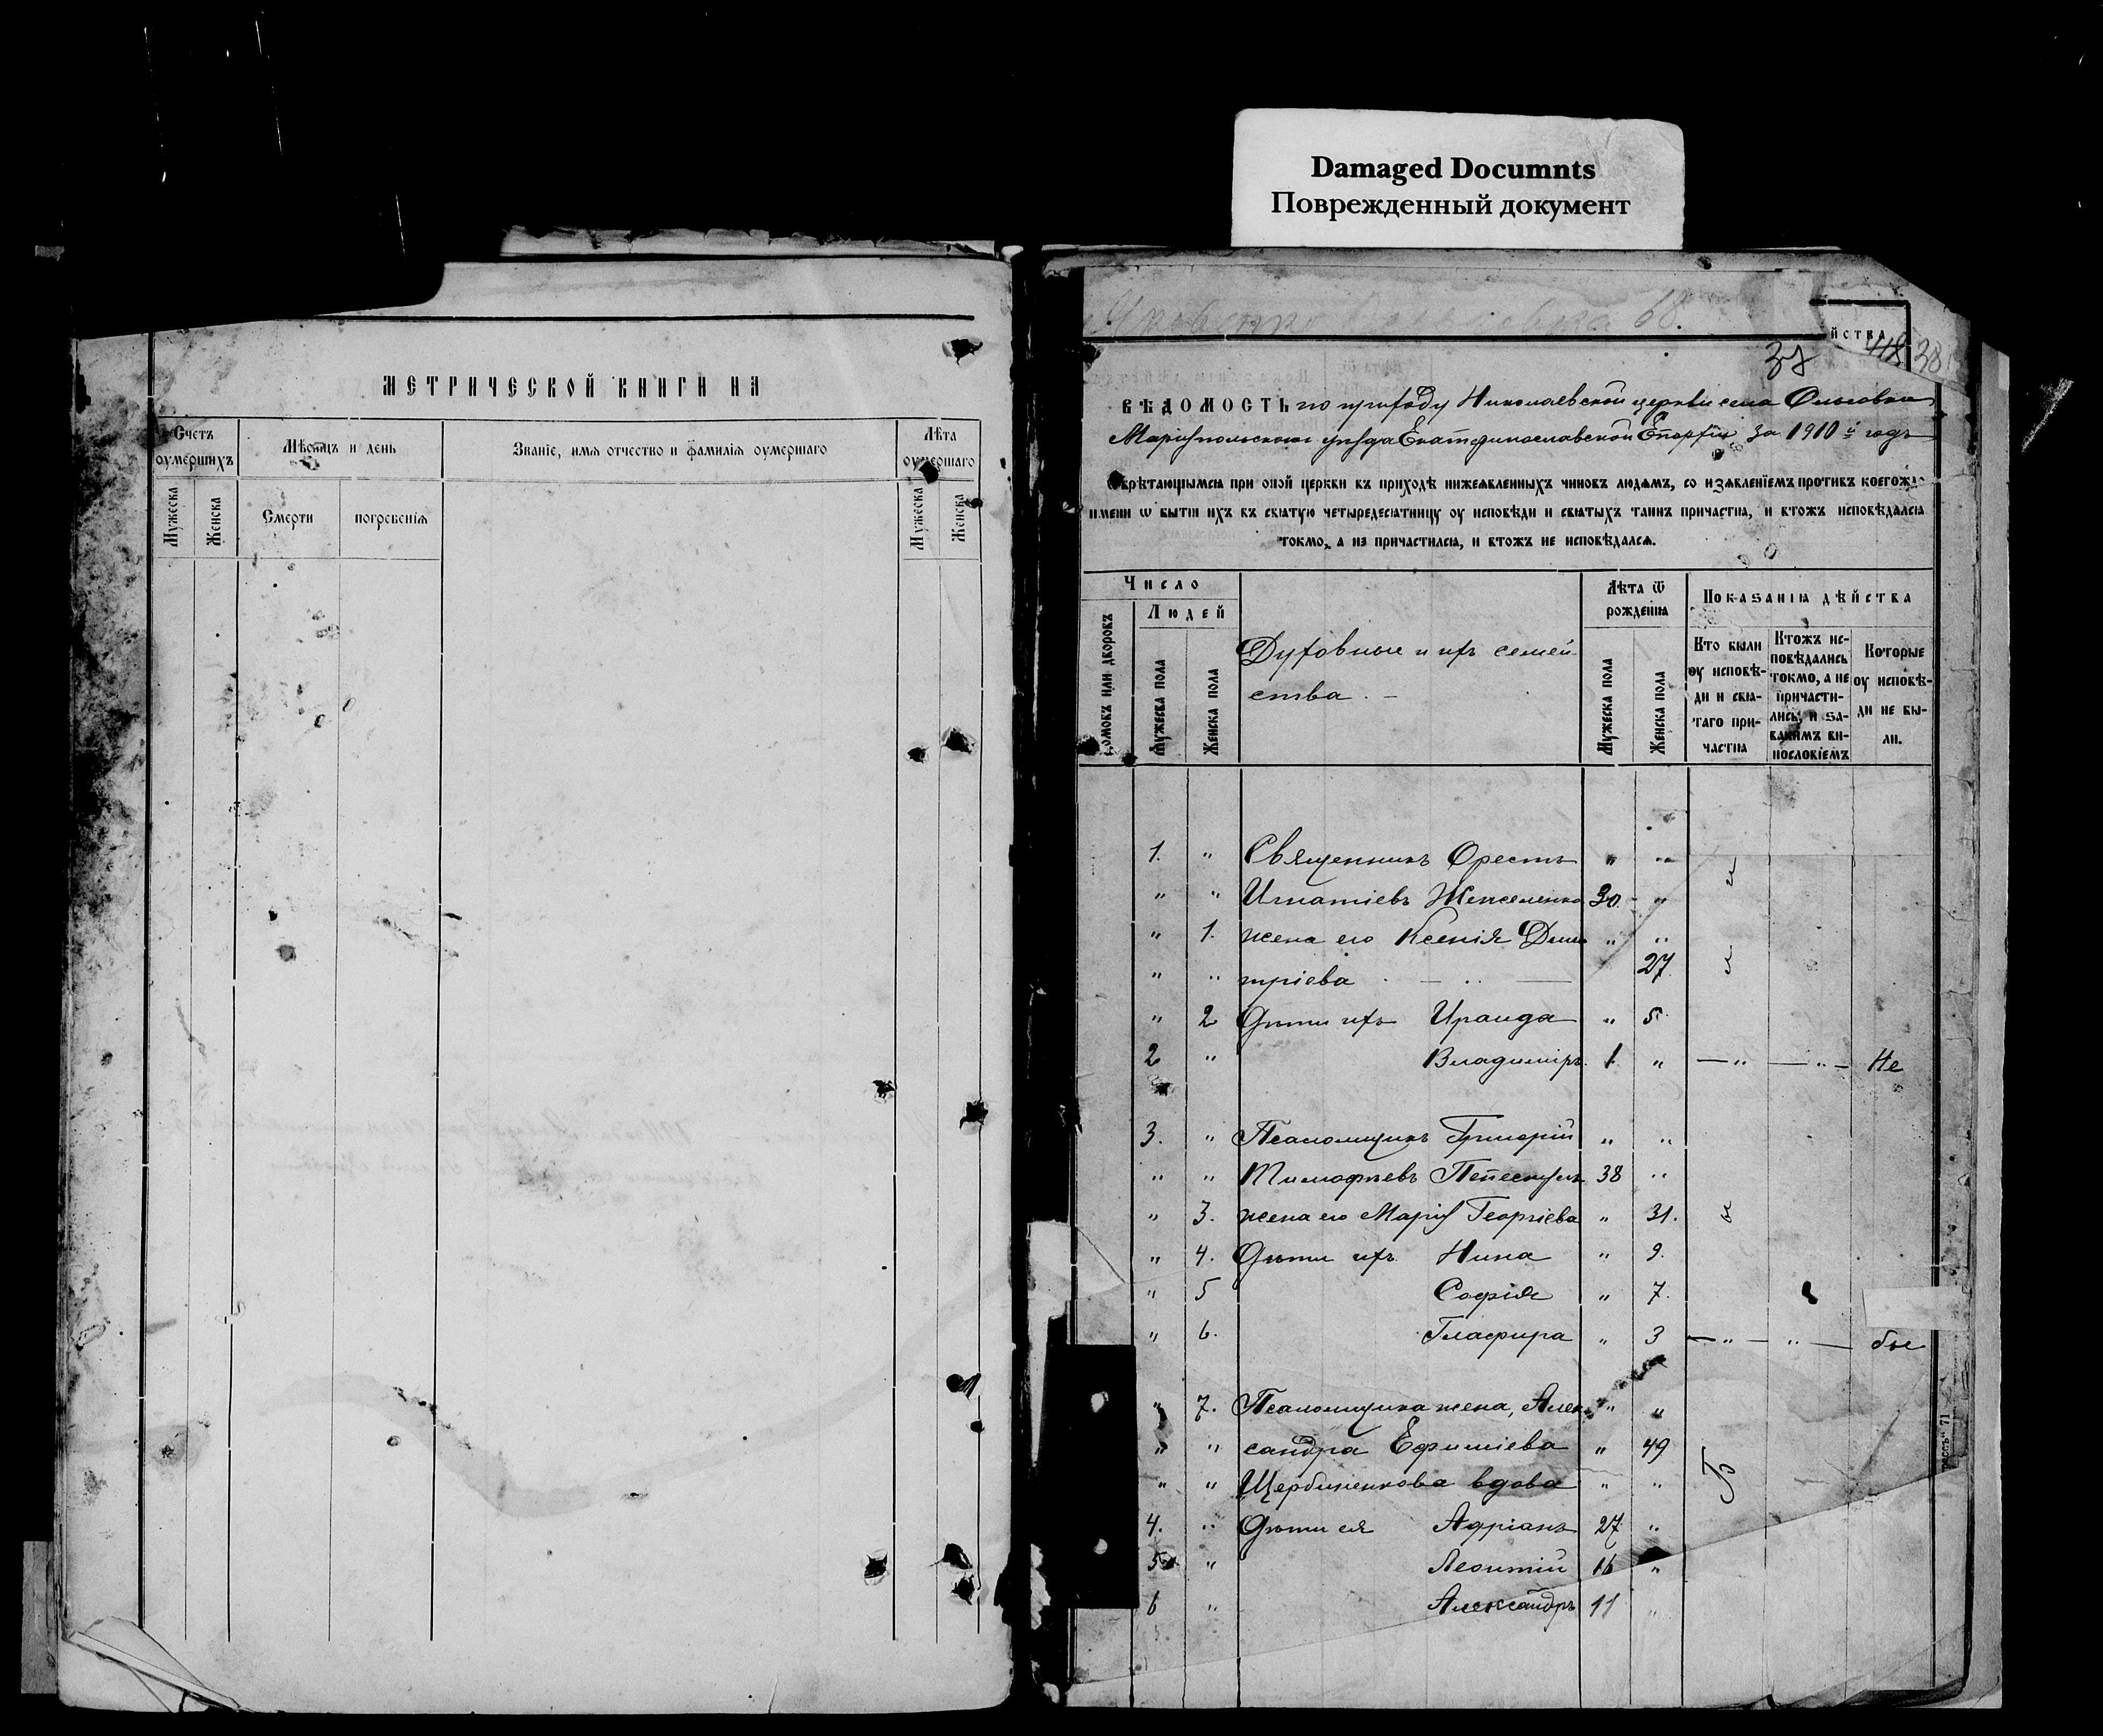 Damaged Documnts
Поврежденный документ
МЕТРИЧЕСКОЙ КНИГИ НА
Счетъ оумершихъ
Мѣсяцъ и день
Званіе, имя отчество и фамилія оумершаго
Лѣта оумершаго
Мужеска
Женска
Смерти
погребенія
Мужеска
Женска
йства
37
418
38
ВѢДОМОСТЬ по приходу Николаевской церкви села Ольговки
Маріупольскаго уѣзда Екатеринославской Епархіи за 1910 й годъ
Ѡбрѣтающымся при оной церкви въ приходѣ нижеявленныхъ чиновъ людямъ, со изъявленіемъ противъ коегождо
имени ѡ бытіи ихъ въ святую четыредесятницу оу исповѣди и святыхъ таинъ причастіа, и ктожъ исповѣдался
токмо, а из причастился, и ктожъ не исповѣдался.
Число
Домовъ или дворовъ
Людей
Мужеска пола
Женска пола
Духовные и ихъ семей-
ства. –
Лѣта ѿ рожденіа
Мужеска пола
Женска пола
Показаніа дѣйства
Кто были оу исповѣ-ди и свя-таго при-частіа
Ктожъ ис-повѣдались токмо, а не причасти-лись, и за-какимъ ви-нословіемъ
Которые оу исповѣ-ди не бы-ли.
1. " Священникъ Орестъ " "
" " Игнатіевъ 30 "
" 1. жена его Ксенія Дими " "
" " тріева 27
" 2 Дѣти ихъ Ираида " 5.
2 " Владиміръ 1. " — " — " — Не
3. " Псаломщикъ Григорій " "
" " Тимоѳѣевъ 38 "
" 3. жена его Марія Георгіева " 31.
" 4. Дѣти ихъ Нина " 9.
" 5 Софія " 7.
" 6. Глафира " 3 — " — " — бы
" 7. Псаломщика жена, Алек " "
" " сандра Ефиміева " 49
" " Щербиненкова вдова " "
4. " Дѣти ея Адріанъ 27 "
5 " Леонтій 16 "
6 " Александръ 11 "